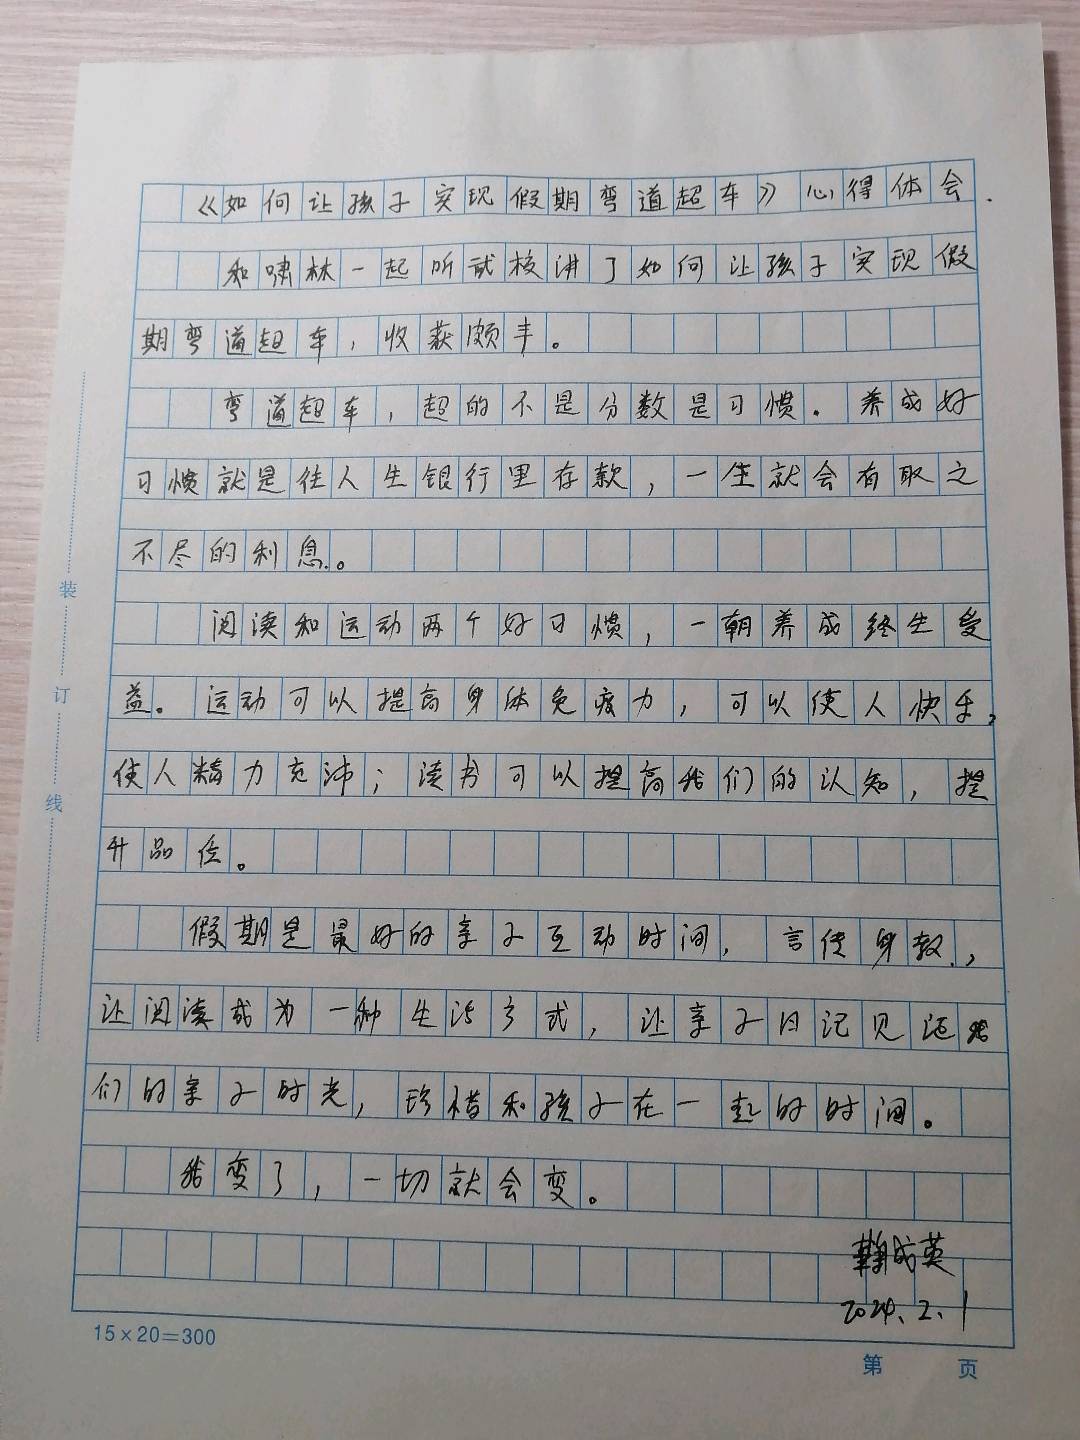 《如何让孩子实现假期弯道超车》心得体会.
和啸林一起听试核讲了如何让孩子实现假
期弯道超车,收获颇丰。
弯道超车,超的不是分数是习惯.养成好
习惯就是往人生银行里存款,一生就会有取之
不尽的利息。
阅读和运动两个好习惯,一朝养成终生受
益。运动可以提高身体免疫力,可以使人快乐,
使人精力充沛;读书可以提高我们的认知,提
升品位。
假期是最好的亲子互动时间,言传身教,
让阅读成为一种生活方式,让亲子日记见证我
们的亲子时光,珍惜和孩子在一起的时间。
我变了,一切就会变。
鞠成英
2024.2.1
装
订
线
15×20=300
第 页